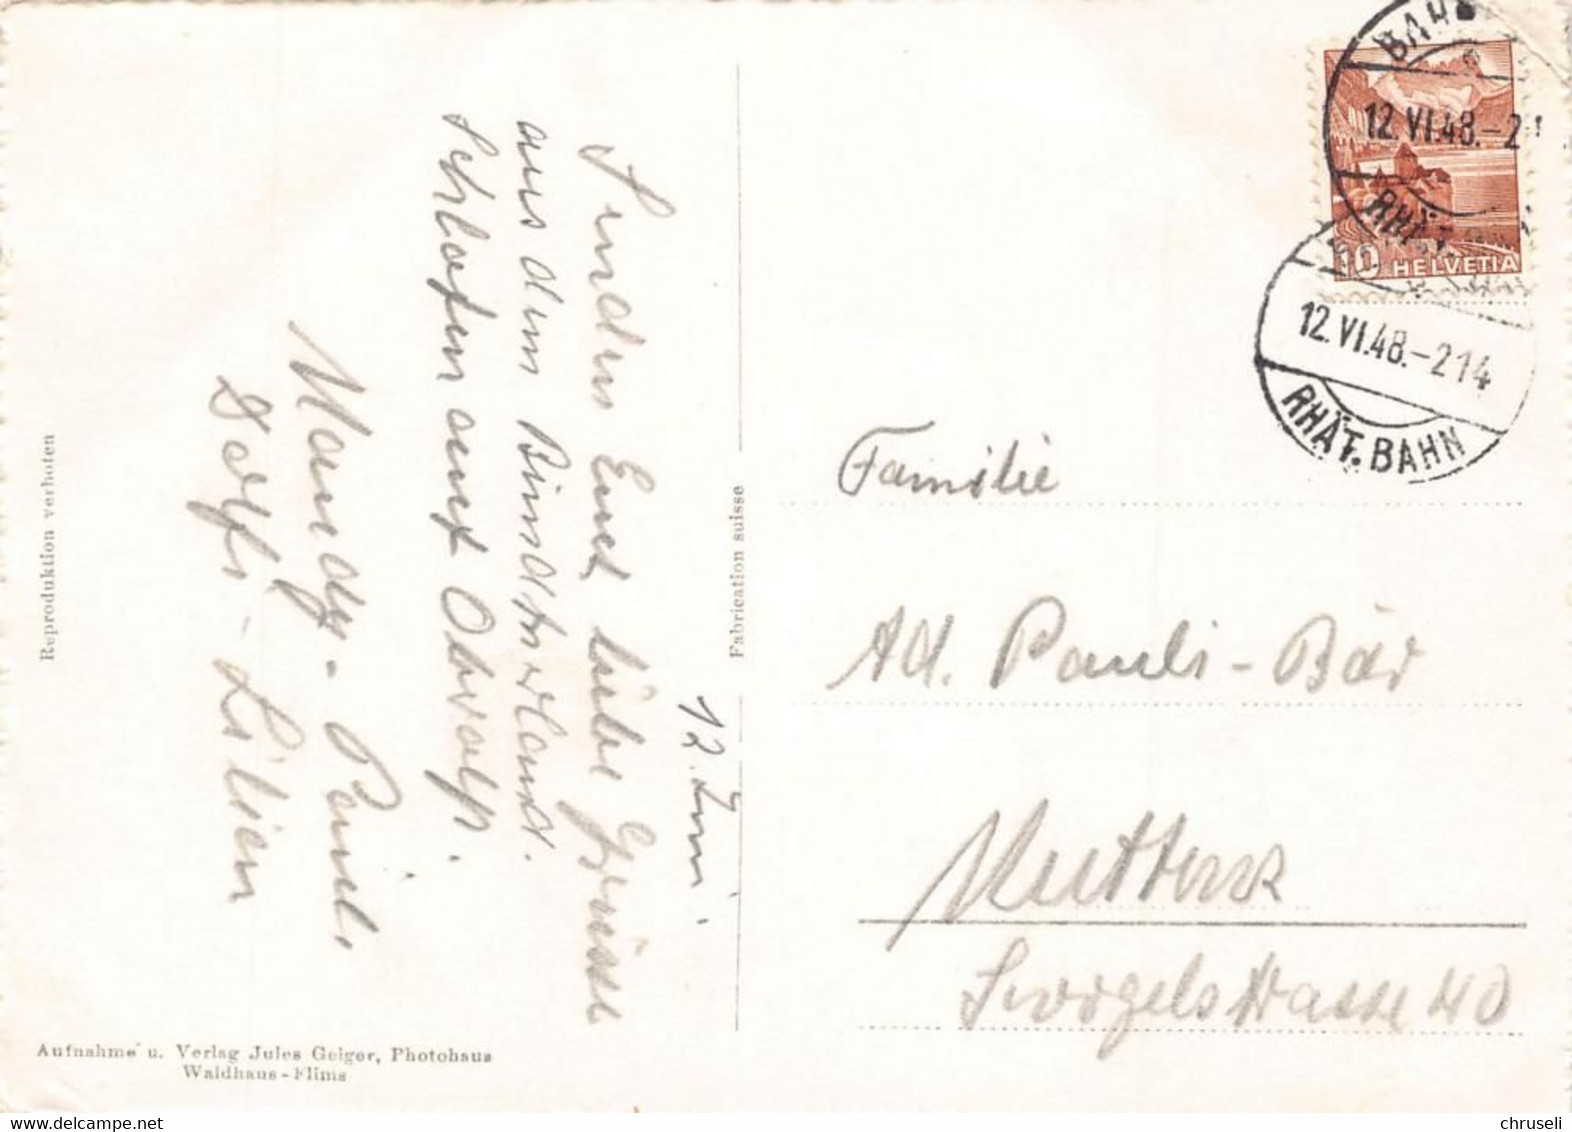 12. Juni.
Senden Euch liebe Grüsse
aus dem Bündnerland.
Schlafen auf Obersalp.
Mandy - Paul.
Dolfi - Lilien
Reproduktion verboten
Fabrication suisse
Aufnahme u. Verlag Jules Geiger, Photohaus
Waldhaus-Flims
12.VI.48.-21
RHÄT.
10 HELVETIA
12.VI.48.-214
RHÄT. BAHN
Familie
Ad. Pauli-Bär
Muttenz
40
chruseli